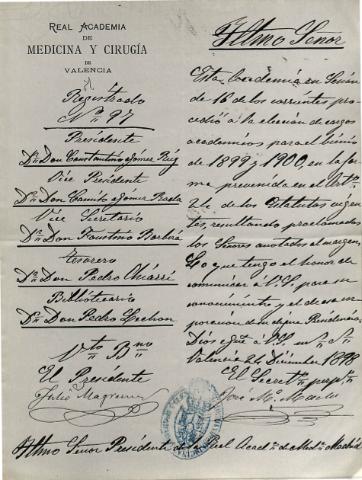 REAL ACADEMIA
DE
MEDICINA Y CIRUGÍA
DE
VALENCIA
Registrado
Nº 97
Presidente
Dr. Don Constantino Gómez Reig
Vice Presidente
Dr. Don Camilo Gómez
Vice Secretario
Dr. Don Faustino Barberá
Tesorero
Dr. Don Pedro Chiarri
Bibliotecario
Dr. Don Pedro Lechon
Vto Bno
El Presidente
Julio Magraner
Iltmo Señor
Esta Academia en sesión
de 16 de los corrientes pro
cedió á la elección de cargos
academicos para el bienio
de 1899 y 1900, en la for
ma prevenida en el Artº
24 de los Estatutos vigen
tes, resultando proclamados
los Señores anotados al margen.
Lo que tengo el honor de
comunicar á V.S. para su
conocimiento y el de esa cor
poracion de su digna Presidencia
Dios gue á V.S. m. a.
Valencia 24 Diciembre 1898
El Secretº perpº
José Mª
Iltmo Señor Presidente de la Real Acadª de Medª Madrid